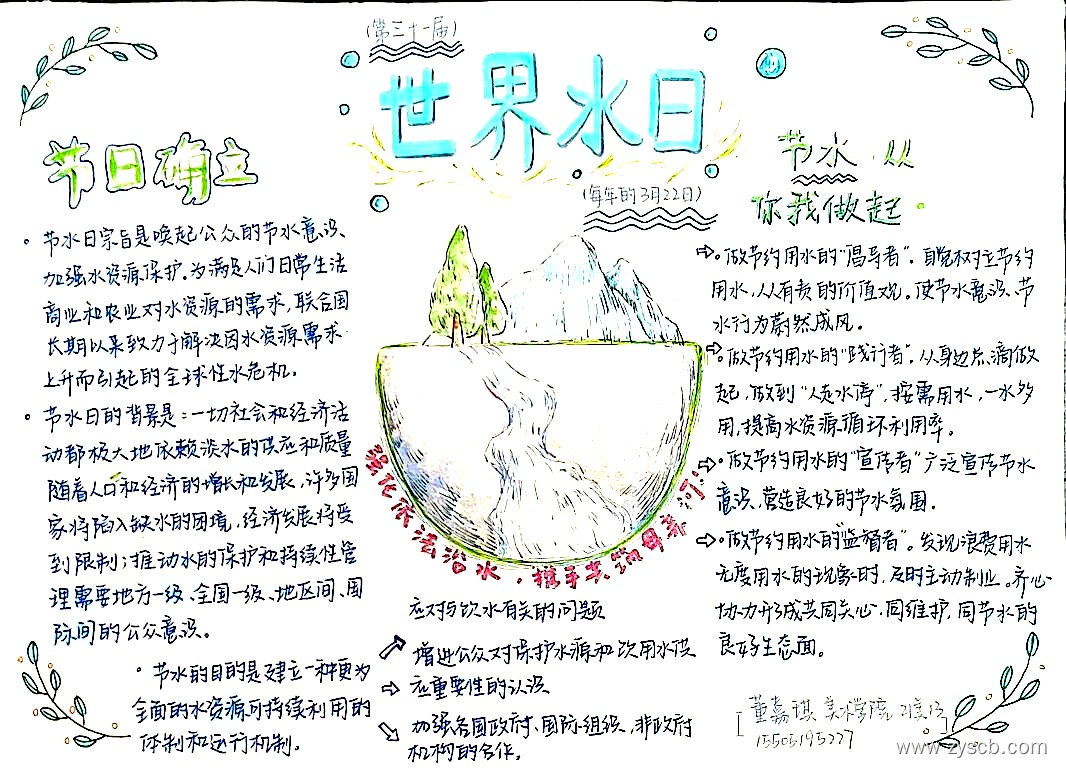 (第三十一届)
世界水日
(每年的3月22日)
节日确立
节水日宗旨是唤起公众的节水意识、
加强水资源保护。为满足人们日常生活
商业和农业对水资源的需求,联合国
长期以来致力于解决因水资源需求
上升而引起的全球性水危机。
节水日的背景是:一切社会和经济活
动都极大地依赖淡水的供应和质量
随着人口和经济的增长和发展,许多国
家将陷入缺水的困境,经济发展将受
到限制;推动水的保护和持续性管
理需要地方一级、全国一级、地区间、国
际间的公众意识。
节水的目的是建立一种更为
全面的水资源可持续利用的
体制和运行机制。
强化依法治水,携手共筑母亲河!
应对与饮水有关的问题
增进公众对保护水源和饮用水供
应重要性的认识
加强各国政府、国际组织、非政府
机构的合作。
节水 从
你我做起
做节约用水的“倡导者”。自觉树立节约
用水,人人有责的价值观。使节水意识、节
水行为蔚然成风。
做节约用水的“践行者”。从身边点滴做
起,做到“人走水停”,按需用水,一水多
用,提高水资源循环利用率。
做节约用水的“宣传者”广泛宣传节水
意识,营造良好的节水氛围。
做节约用水的“监督者”。发现浪费用水
无度用水的现象时,及时主动制止。齐心
协力形成共同关心,同维护,同节水的
良好生态面。
董嘉琪 美术学院
15505195227
www.zyscb.com